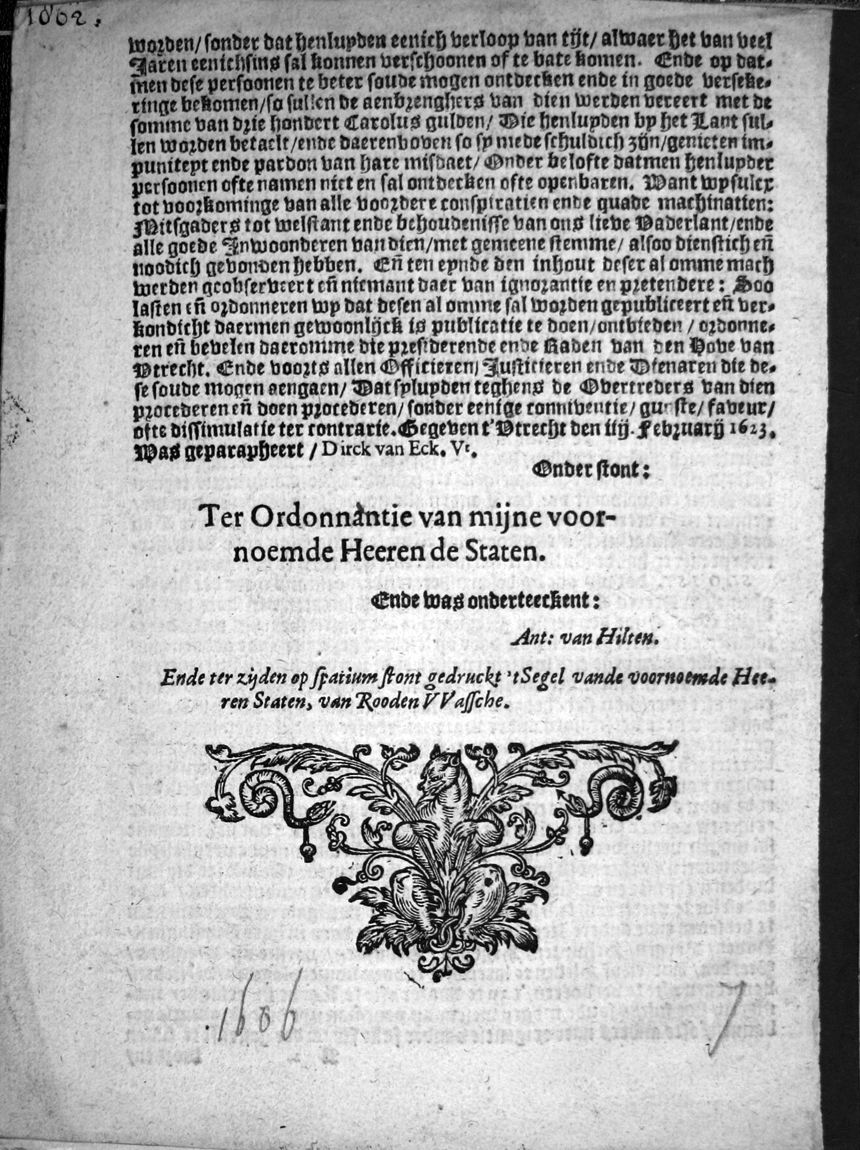 1602.
worden/ sonder dat henluyden eenich verloop van tijt/ alwaer het van veel
Jaren eenichsins sal konnen verschoonen of te bate komen. Ende op dat-
men dese persoonen te beter soude mogen ontdecken ende in goede verseke-
ringe bekomen/ so sullen de aenbrenghers van dien werden vereert met de
somme van drie hondert Carolus gulden/ Die henluyden by het Lant sul-
len worden betaelt/ ende daerenboven so sy mede schuldich zijn/ genieten im-
puniteyt ende pardon van hare misdaet/ Onder belofte datmen henluyder
persoonen ofte namen niet en sal ontdecken ofte openbaren. Want wy sulcx
tot voorkominge van alle voordere conspiratien ende quade machinatien:
Mitsgaders tot welstant ende behoudenisse van ons lieve Vaderlant/ ende
alle goede Inwoonderen van dien/ met gemeene stemme/ alsoo dienstich eñ
noodich gevonden hebben. Eñ ten eynde den inhout deser al omme mach
werden geobserveert eñ niemant daer van ignorantie en pretendere: Soo
lasten eñ ordonneren wy dat desen al omme sal worden gepubliceert eñ ver-
kondicht daermen gewoonlijck is publicatie te doen/ ontbieden/ ordonne-
ren eñ bevelen daeromme die presiderende ende Raden van den Hove van
Vtrecht. Ende voorts allen Officieren/ Justicieren ende Dienaren die de-
se soude mogen aengaen/ Dat syluyden teghens de Overtreders van dien
procederen eñ doen procederen/ sonder eenige conniventie/ gunste/ faveur/
ofte dissimulatie ter contrarie. Gegeven t'Vtrecht den iiij. Februarij 1623.
Was geparapheert / Dirck van Eck. Vt.
Onder stont:
Ter Ordonnantie van mijne voor-
noemde Heeren de Staten.
Ende was onderteeckent:
Ant: van Hilten.
Ende ter zijden op spatium stont gedruckt 't Segel vande voornoemde Hee-
ren Staten, van Rooden VVassche.
1606
7